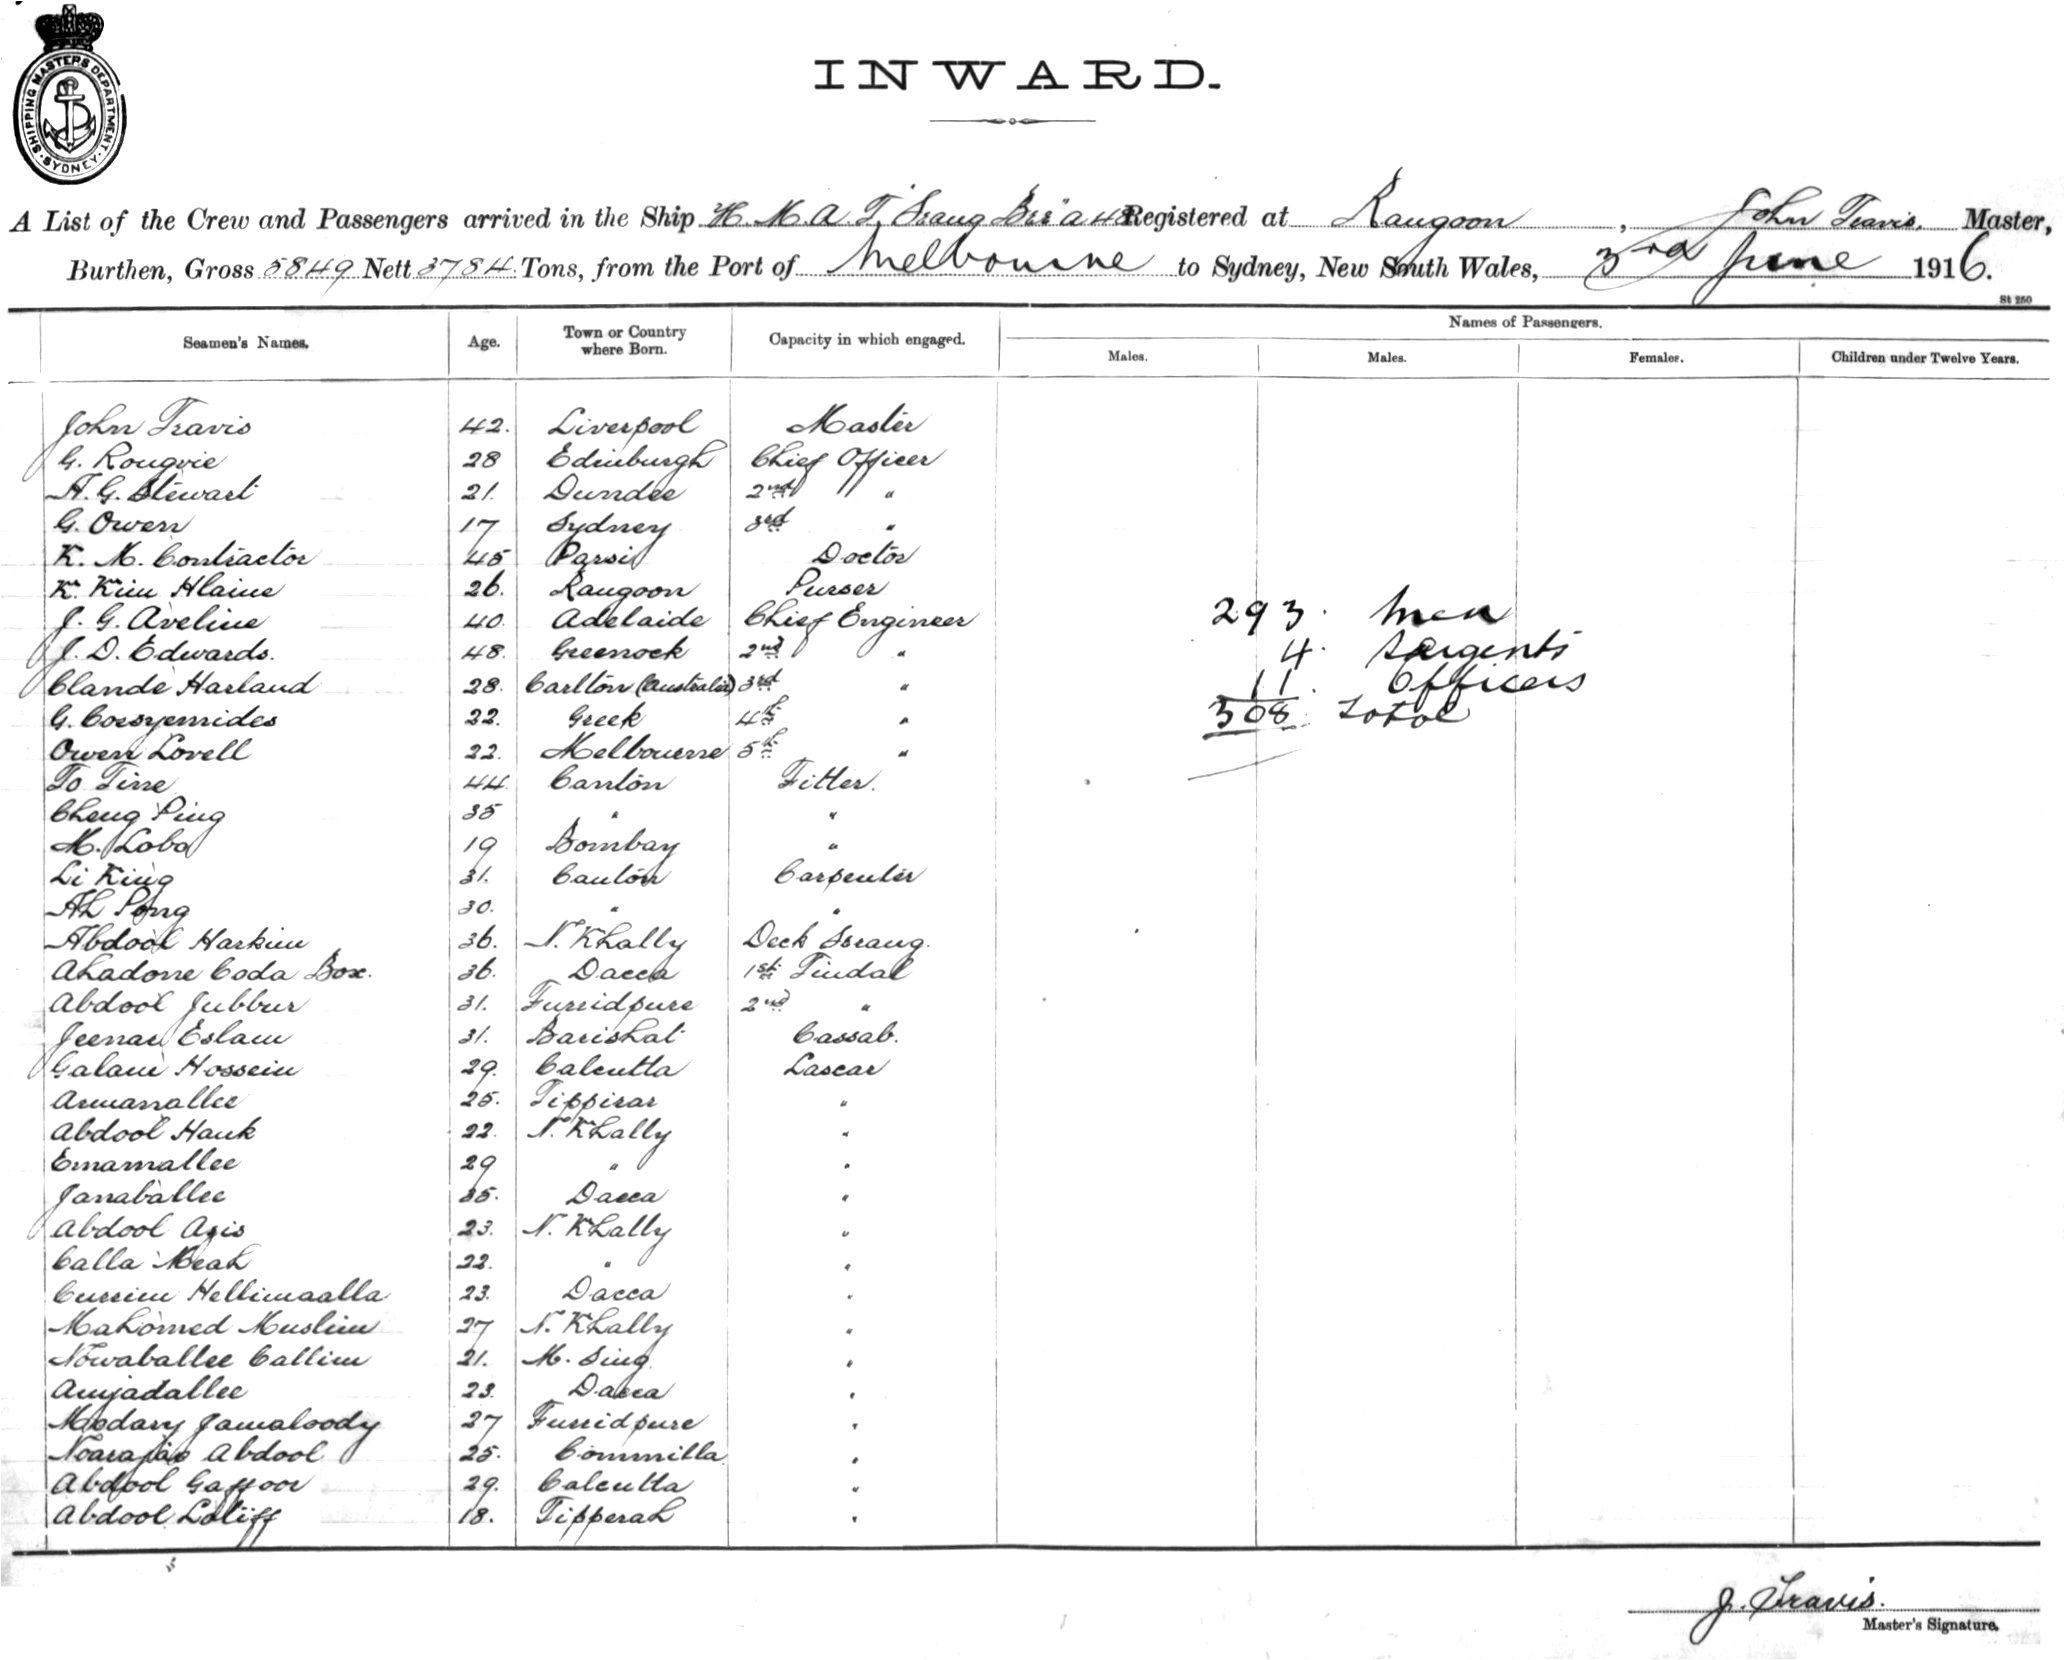 SHIPPING MASTERS DEPARTMENT
SYDNEY
INWARD.
A List of the Crew and Passengers arrived in the Ship H. M. A. T. "Seang Bee" A 48 Registered at Rangoon, John Travis. Master,
Burthen, Gross 5849 Nett 3784 Tons, from the Port of Melbourne to Sydney, New South Wales, 3rd June 1916.
St 250
Seamen's Names. Age. Town or Country where Born. Capacity in which engaged. Names of Passengers.
Males. Males. Females. Children under Twelve Years.
John Travis 42. Liverpool Master
G. Rougvie 28 Edinburgh Chief Officer
H. G. Stewart 21. Dundee 2nd "
G. Owen 17 Sydney 3rd "
K. M. Contractor 45 Parsi Doctor
K. Kim Hlaine 26. Rangoon Purser
J. G. Aveline 40. Adelaide Chief Engineer 293. Men
J. D. Edwards. 48. Greenock 2nd " 4. Sargents
Claude Harland 28. Carlton (Australia) 3rd " 11. Officers
G. 22. Greek 4th " 308 Total
Owen Lovell 22. Melbourne 5th "
To Tine 44. Canton Fitter.
Cheng Ping 35 " "
M. Lobo 19 Bombay "
Li King 31. Canton Carpenter
Ah Pong 30. " "
Abdool Harkim 36. N. Khally Deck Serang.
Ahadone Coda Box. 36. Dacca 1st Tindal
Abdool Jubbur 31. Furridpure 2nd "
Jeenar Eslam 31. Barishal Cassab.
Galam Hossein 29. Calcutta Lascar
Armanallee 25. Tippirar "
Abdool Hauk 22. N. Khally "
Emamallee 29 " "
Janaballee 35. Dacca "
Abdool Azis 23. N. Khally "
Calla Meah 22. " "
Currim Hellimaalla 23. Dacca "
Mahomed Muslim 27 N. Khally "
Nowaballee Callim 21. M. Sing "
Amjadallee 23. Dacca "
Modary Jamaloody 27 Furridpure "
Abdool 25. Commilla "
Abdool Gaffoor 29. Calcutta "
Abdool Latiff 18. Tipperah "
J. Travis.
Master's Signature.